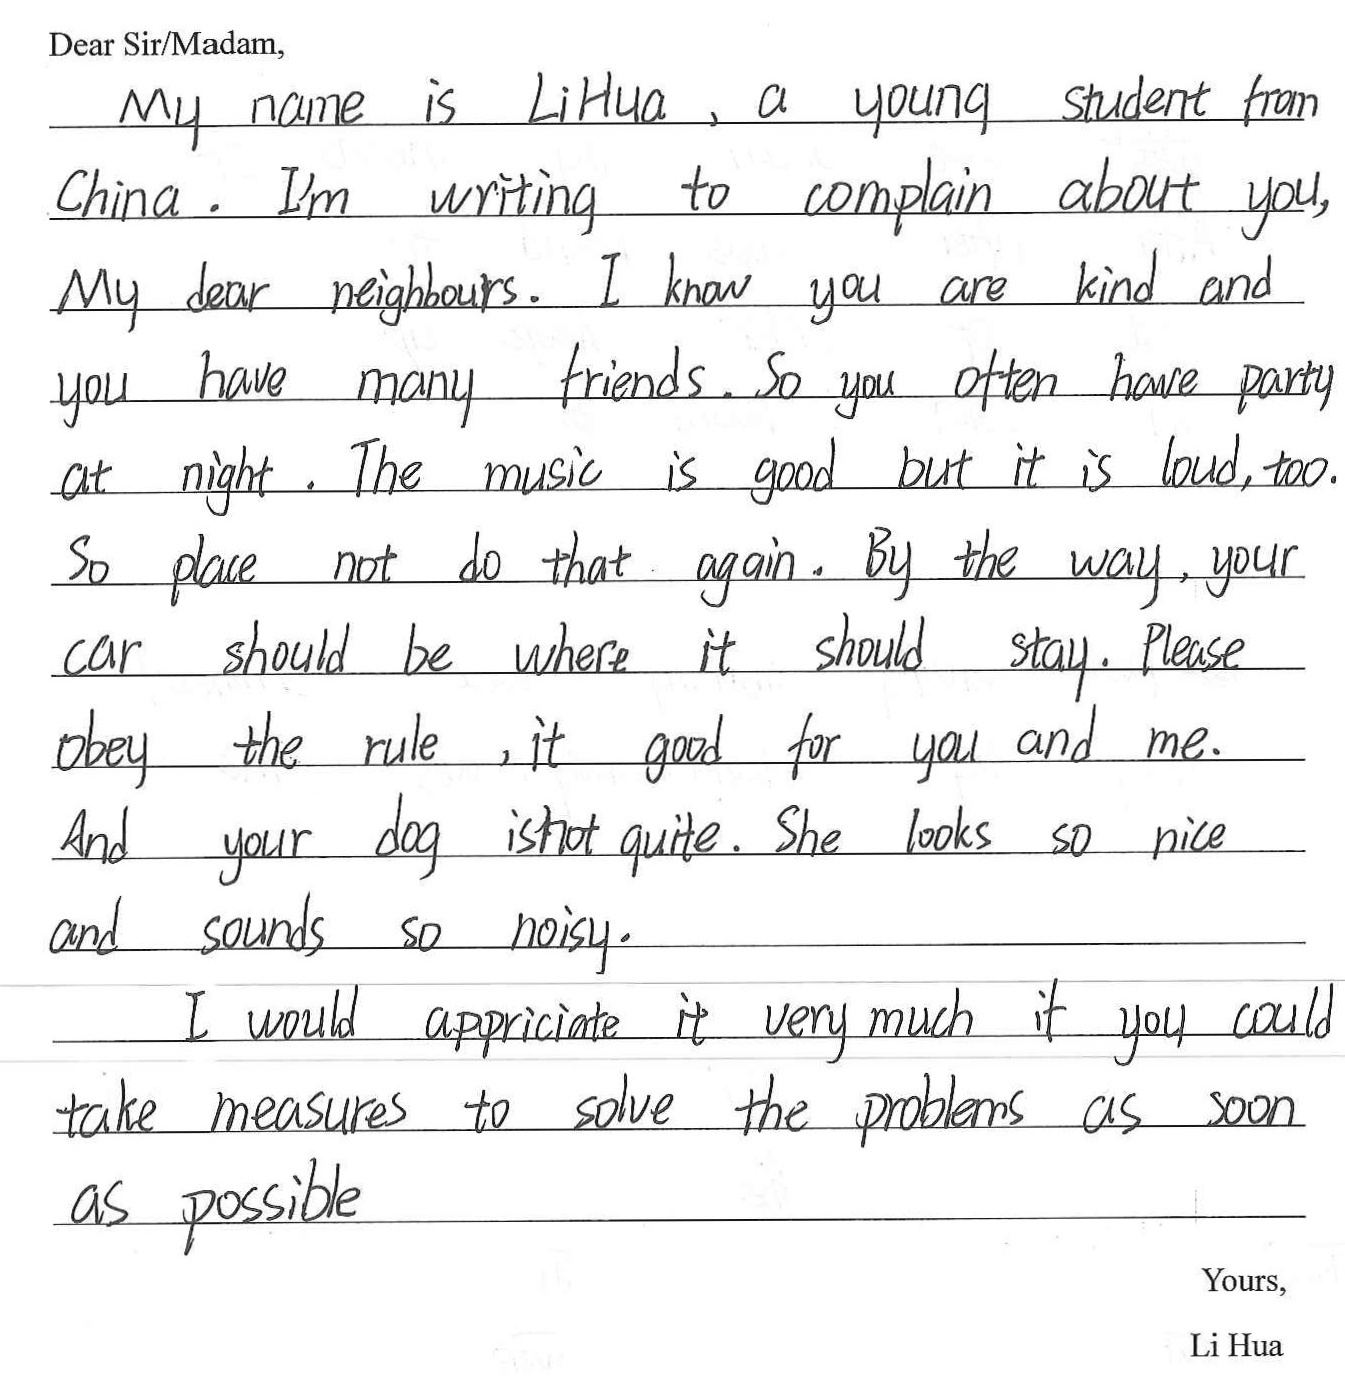 Dear Sir/Madam,
My name is LiHua, a young student from
China. I'm writing to complain about you,
My dear neighbours. I know you are kind and
you have many friends. So you often have party
at night. The music is good but it is loud, too.
So place not do that again. By the way, your
car should be where it should stay. Please
obey the rule, it good for you and me.
And your dog isnot quite. She looks so nice
and sounds so noisy.
I would appriciate it very much if you could
take measures to solve the problems as soon
as possible
Yours,
Li Hua